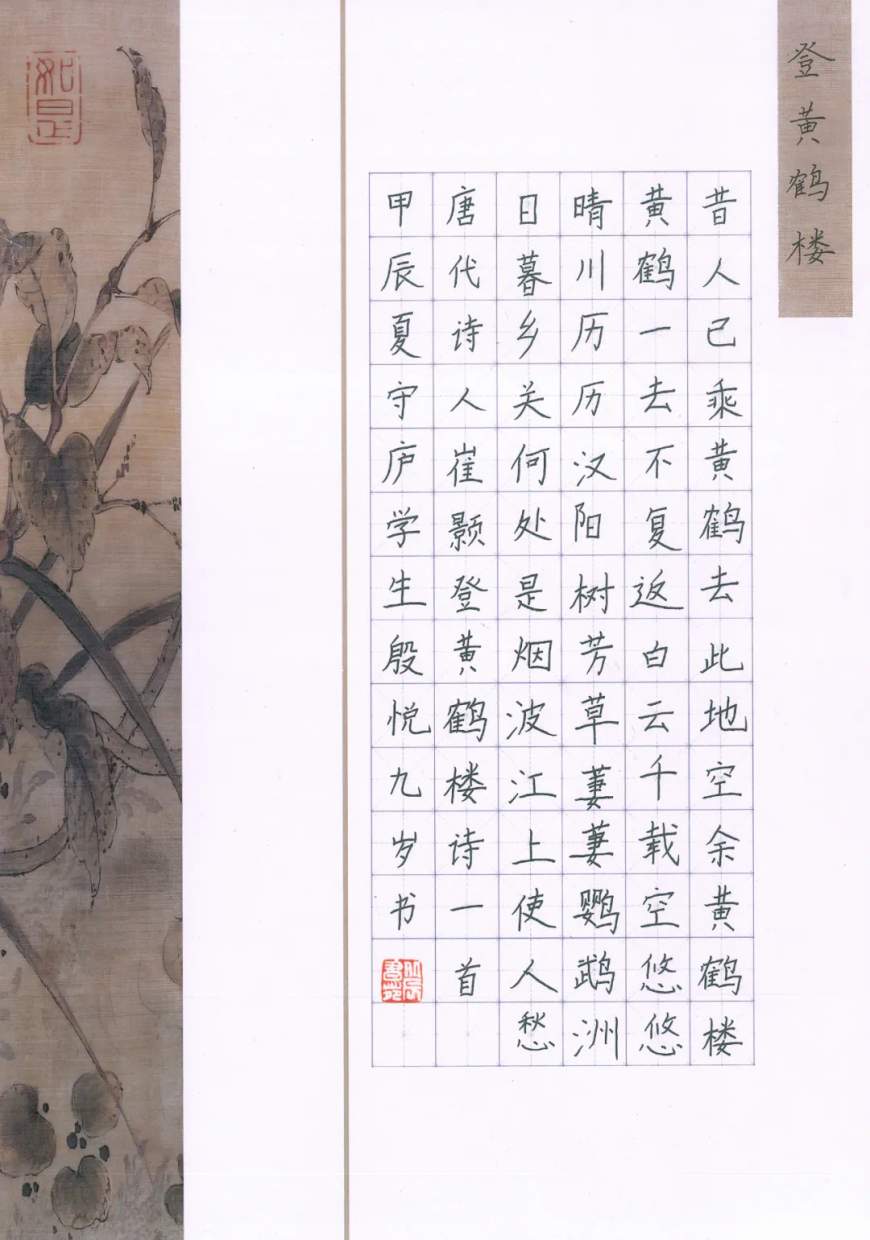 登黄鹤楼
昔人已乘黄鹤去此地空余黄鹤楼
黄鹤一去不复返白云千载空悠悠
晴川历历汉阳树芳草萋萋鹦鹉洲
日暮乡关何处是烟波江上使人愁
唐代诗人崔颢登黄鹤楼诗一首
甲辰夏守庐学生殷悦九岁书
如是